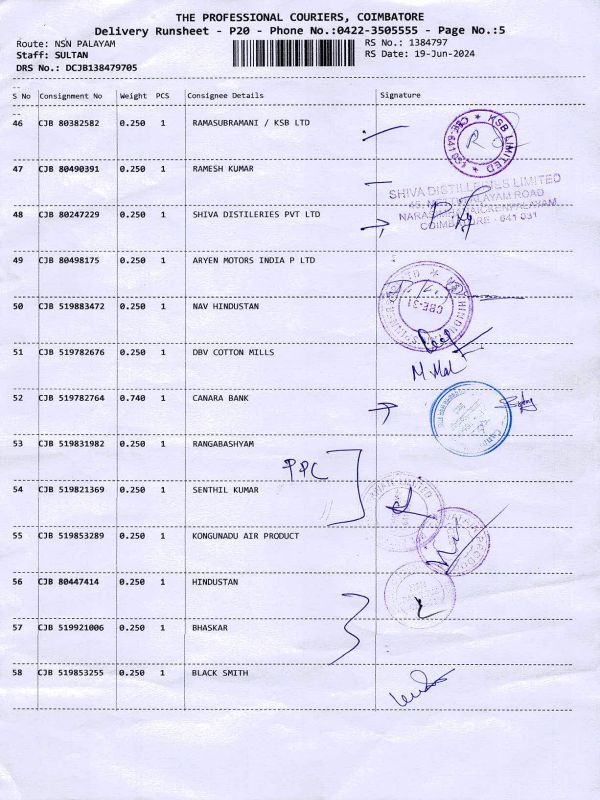 THE PROFESSIONAL COURIERS, COIMBATORE
Delivery Runsheet - P20 - Phone No.:0422-3505555 - Page No.:5
Route: NSN PALAYAM
RS No.: 1384797
Staff: SULTAN
RS Date: 19-Jun-2024
DRS No.: DCJB138479705
S No Consignment No Weight PCS Consignee Details Signature
46 CJB 80382582 0.250 1 RAMASUBRAMANI / KSB LTD
KSB LIMITED
47 CJB 80490391 0.250 1 RAMESH KUMAR
SHIVA DISTILLERIES LIMITED
48 CJB 80247229 0.250 1 SHIVA DISTILERIES PVT LTD
COIMBATORE - 641 031
49 CJB 80498175 0.250 1 ARYEN MOTORS INDIA P LTD
50 CJB 519883472 0.250 1 NAV HINDUSTAN
CBE-31
51 CJB 519782676 0.250 1 DBV COTTON MILLS
52 CJB 519782764 0.740 1 CANARA BANK
53 CJB 519831982 0.250 1 RANGABASHYAM
PPC
54 CJB 519821369 0.250 1 SENTHIL KUMAR
55 CJB 519853289 0.250 1 KONGUNADU AIR PRODUCT
56 CJB 80447414 0.250 1 HINDUSTAN
57 CJB 519921006 0.250 1 BHASKAR
58 CJB 519853255 0.250 1 BLACK SMITH